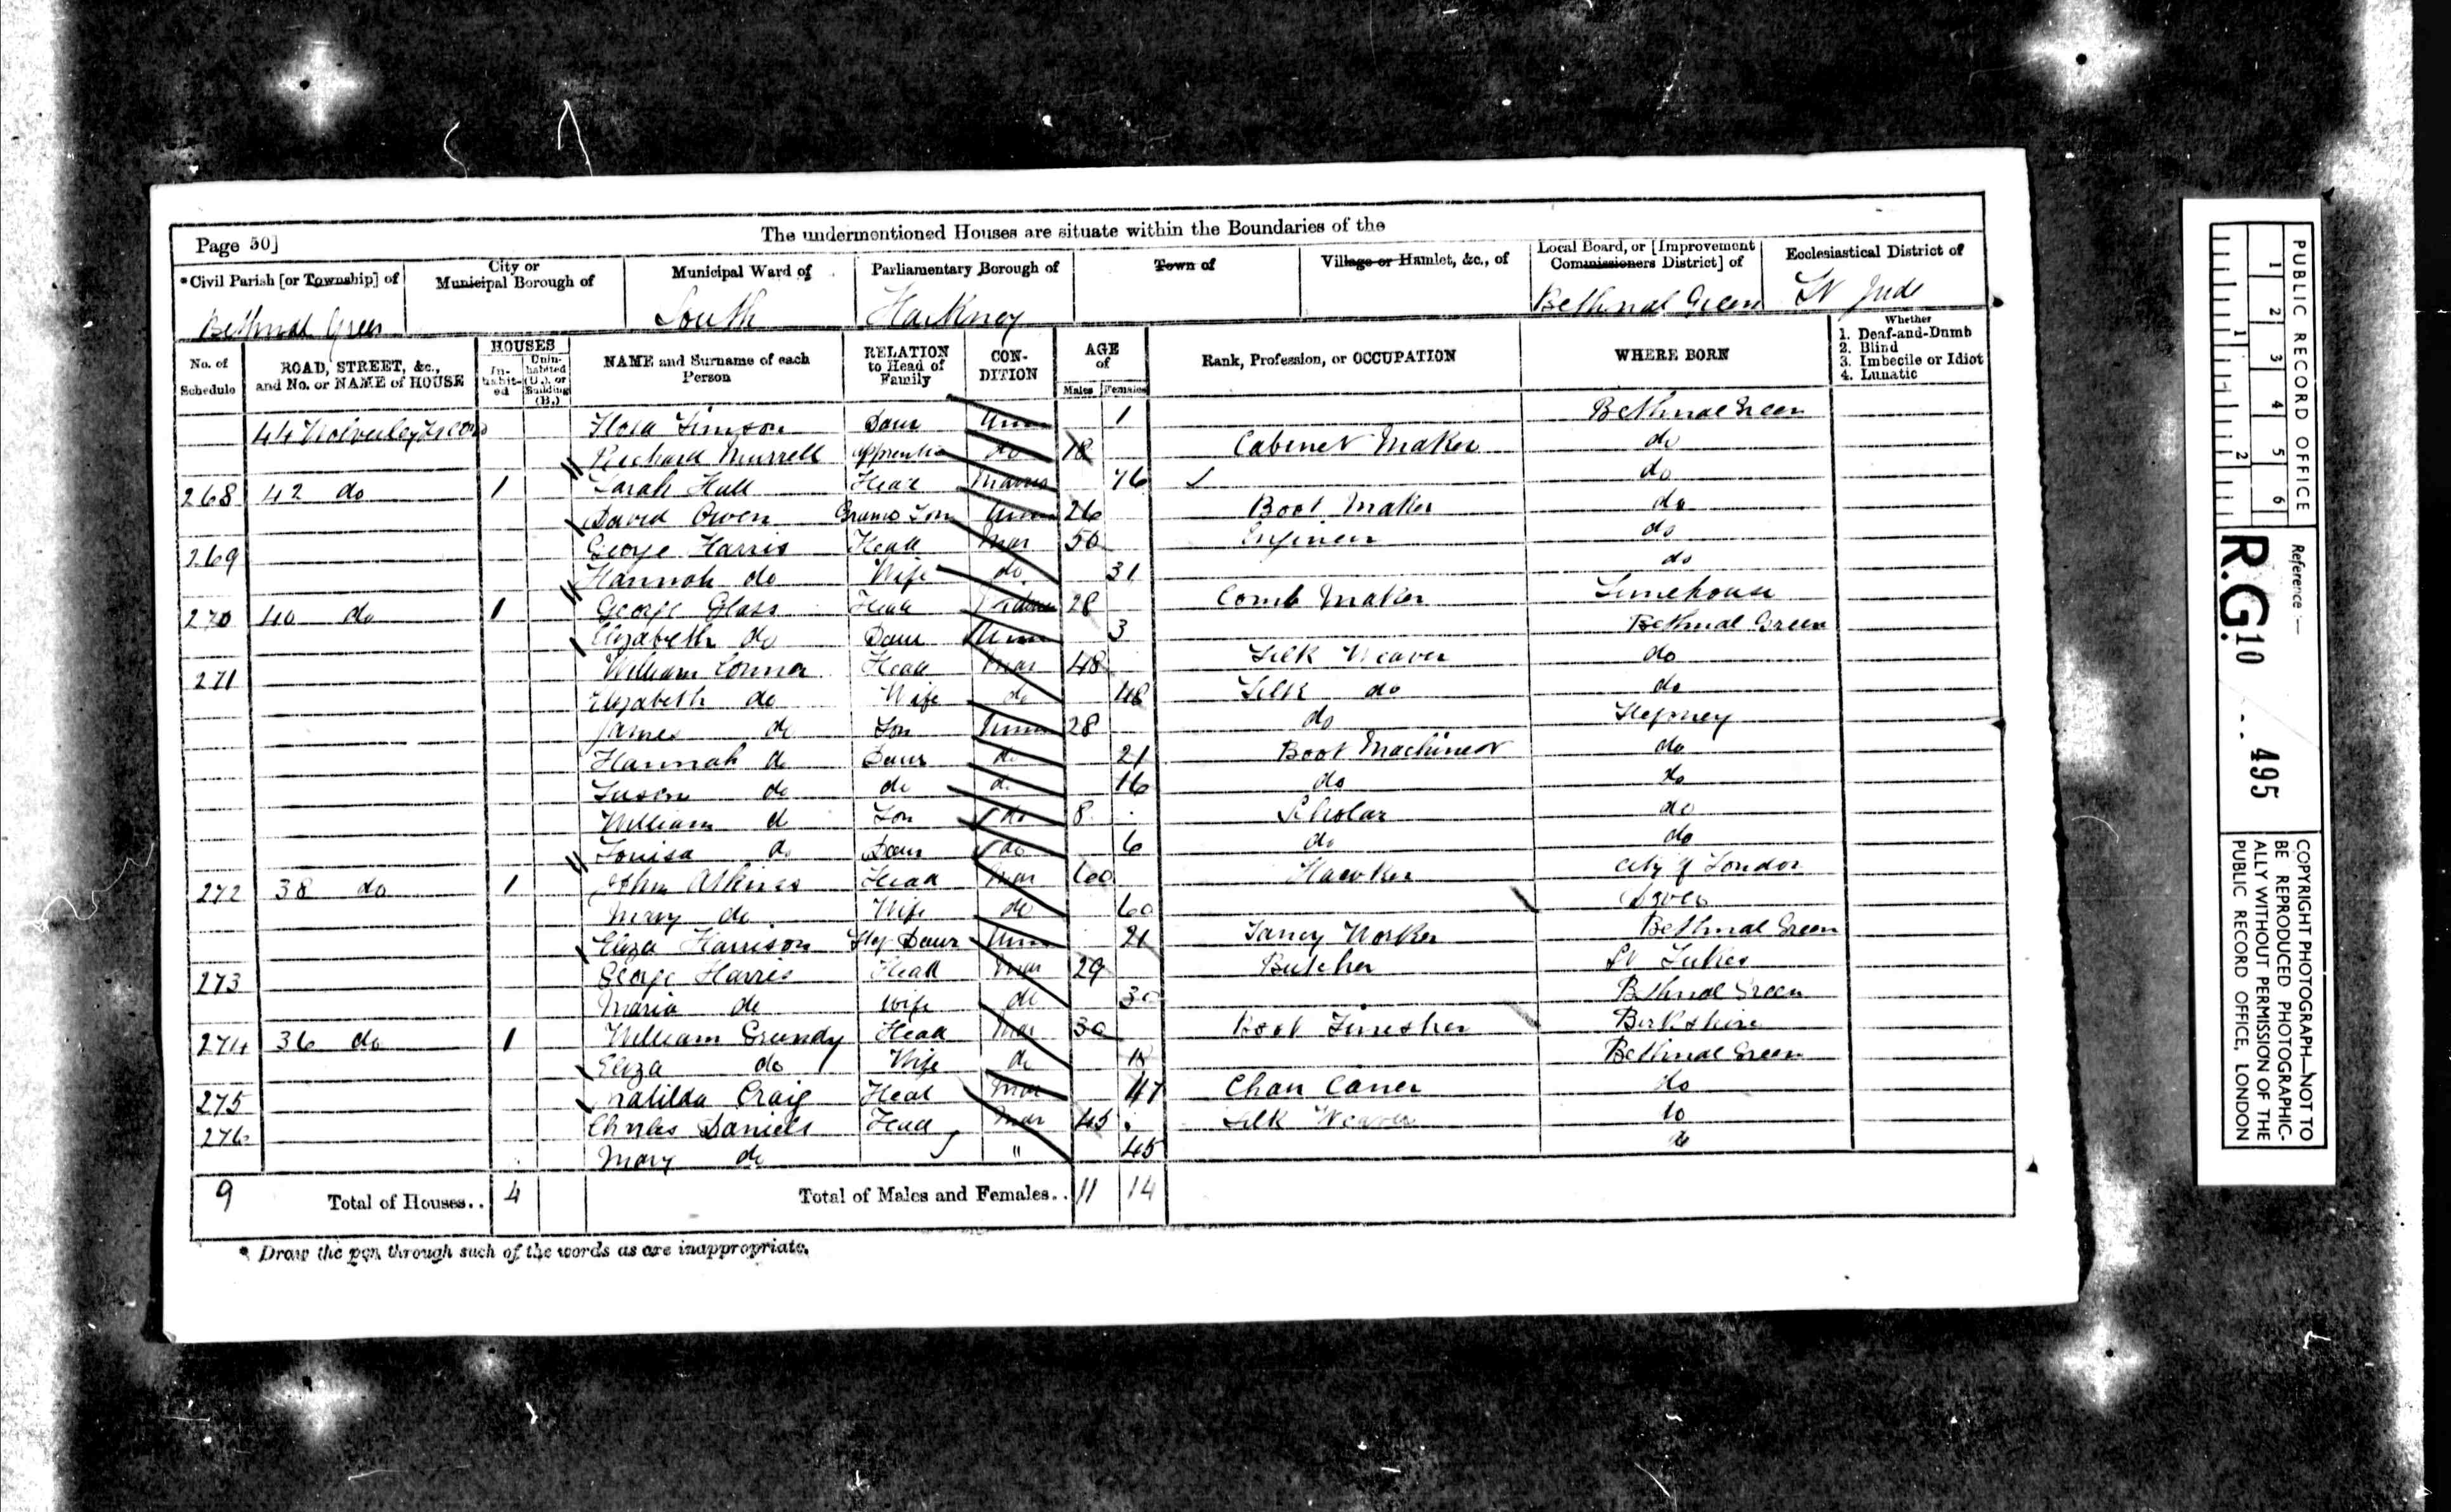 Page 50]
The undermentioned Houses are situate within the Boundaries of the
*Civil Parish [or Township] of
City or Municipal Borough of
Municipal Ward of
Parliamentary Borough of
Town of
Village or Hamlet, &c., of
Local Board, or [Improvement Commissioners District] of
Ecclesiastical District of
Bethnal Green South Hackney Bethnal Green St Jude
No. of Schedule
ROAD, STREET, &c., and No. or NAME of HOUSE
HOUSES
In-habit-ed
Unin-habited (U.), or Building (B.)
NAME and Surname of each Person
RELATION to Head of Family
CON-DITION
AGE of
Males Females
Rank, Profession, or OCCUPATION
WHERE BORN
Whether
1. Deaf-and-Dumb
2. Blind
3. Imbecile or Idiot
4. Lunatic
44 Daur Unm 1 Bethnal Green
Richard Murrell Apprentice do 18 Cabinet Maker do
268 42 do 1 Sarah Hall Head 76 do
David Owen Grand Son Unm 26 Boot Maker do
269 George Harris Head Mar 50 Engineer do
Hannah do Wife do 31 do
270 40 do 1 George Glass Head 28 Comb Maker Limehouse
Elizabeth do Daur Unm 3 Bethnal Green
271 William Connor Head Mar 48 Silk Weaver do
Elizabeth do Wife do 48 Silk do do
James do Son Unm 28 do Stepney
Hannah do Daur do 21 Boot Machinest do
Susan do do do 16 do do
William do Son do 8 Scholar do
Louisa do Daur do 6 do do
272 38 do 1 John Head Mar 60 Hawker City of London
Mary do Wife do 60
Eliza Harrison Step Daur Unm 21 Fancy Worker Bethnal Green
273 George Harris Head Mar 29 Butcher St Lukes
Maria do Wife do 30 Bethnal Green
274 36 do 1 William Grundy Head Mar 30 Boot Finesher Berkshire
Eliza do Wife do 18 Bethnal Green
275 Matilda Craig Head Mar 47 Chair Caner do
276 Charles Daniels Head Mar 45 Silk Weaver do
Mary do " 45 do
9 Total of Houses.. 4 Total of Males and Females.. 11 14
* Draw the pen through such of the words as are inappropriate.
PUBLIC RECORD OFFICE
1 2 3 4 5 6
1 2
Reference:—
R.G. 10 495
COPYRIGHT PHOTOGRAPH—NOT TO
BE REPRODUCED PHOTOGRAPHIC-
ALLY WITHOUT PERMISSION OF THE
PUBLIC RECORD OFFICE, LONDON